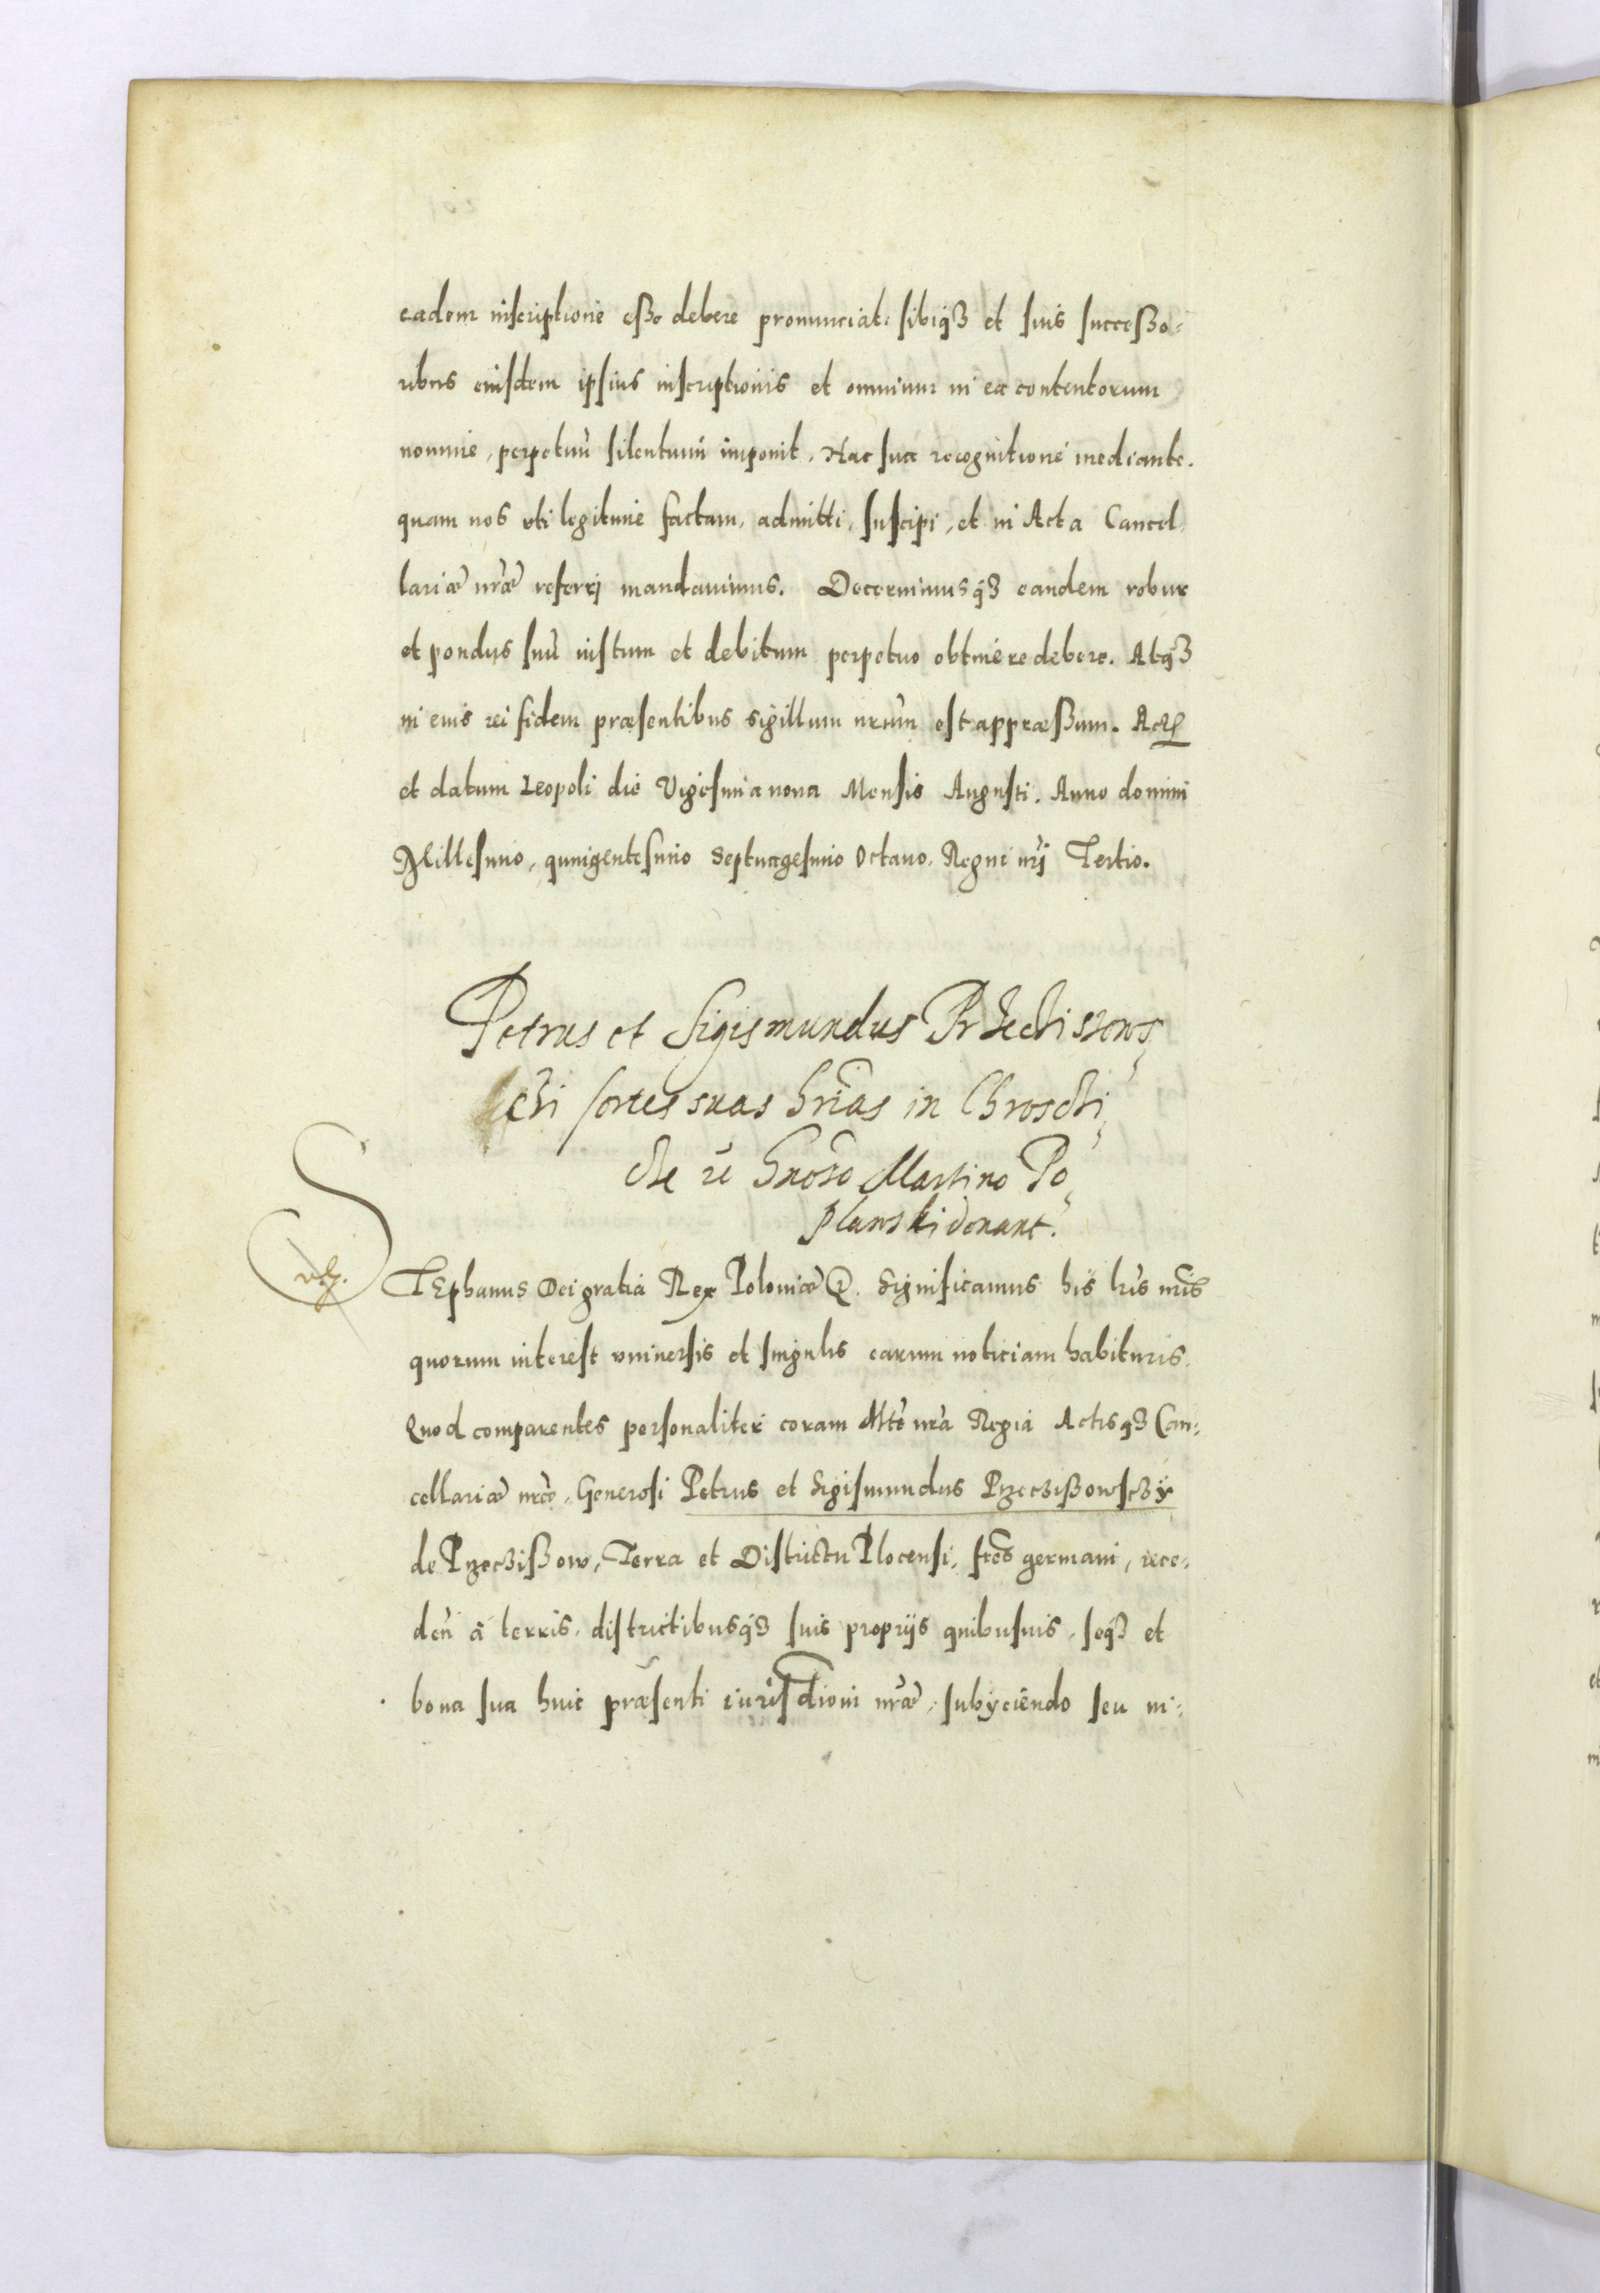 eadem inscriptione esße debere pronunciat. sibiqȝ et suis succesßo=
ribus eiusdem ipsius inscriptionis et omnium in ea contentorum
nomine, perpetuũ silentium imponit. Hac sua recognitione mediante.
quam nos uti legitime factam, admitti, suscipi, et in Acta Cancel,
lariæ nr̃æ referri mandauimus. Decernimusqȝ eandem robur
et pondus suũ iustum et debitum perpetuo obtinere debere. Atqȝ
in eius rei fidem præsentibus sigillum nrũm est appræsßum. Act
et datum Leopoli die Vigesima nona Mensis Augusti. Anno domini
Millesimo, quingentesimo Septuagesimo Octauo. Regni nr̃i Tertio.
Petrus et Sigismundus
sortes suas hr̃ias in Chroschi,
Gnoso Martino Po,
plawski donant.
STEphanus Dei gratia Rex Poloniæ &. Significamus his lr̃is nr̃is
quorum interest uniuersis et singulis earum noticiam habituris.
Quod comparentes personaliter coram Mte nr̃a Regia Actisqȝ Can=
cellariæ nr̃æ, Generosi Petrus et Sigismundus Przeczißowsczÿ
de Przeczißow, Terra et Districtu Plocensi, fr̃es germani, rece=
deñ à terris, districtibusqȝ suis proprijs quibusuis, seqȝ et
bona sua huic præsenti iurisdioni nr̃æ, subÿciendo seu in=